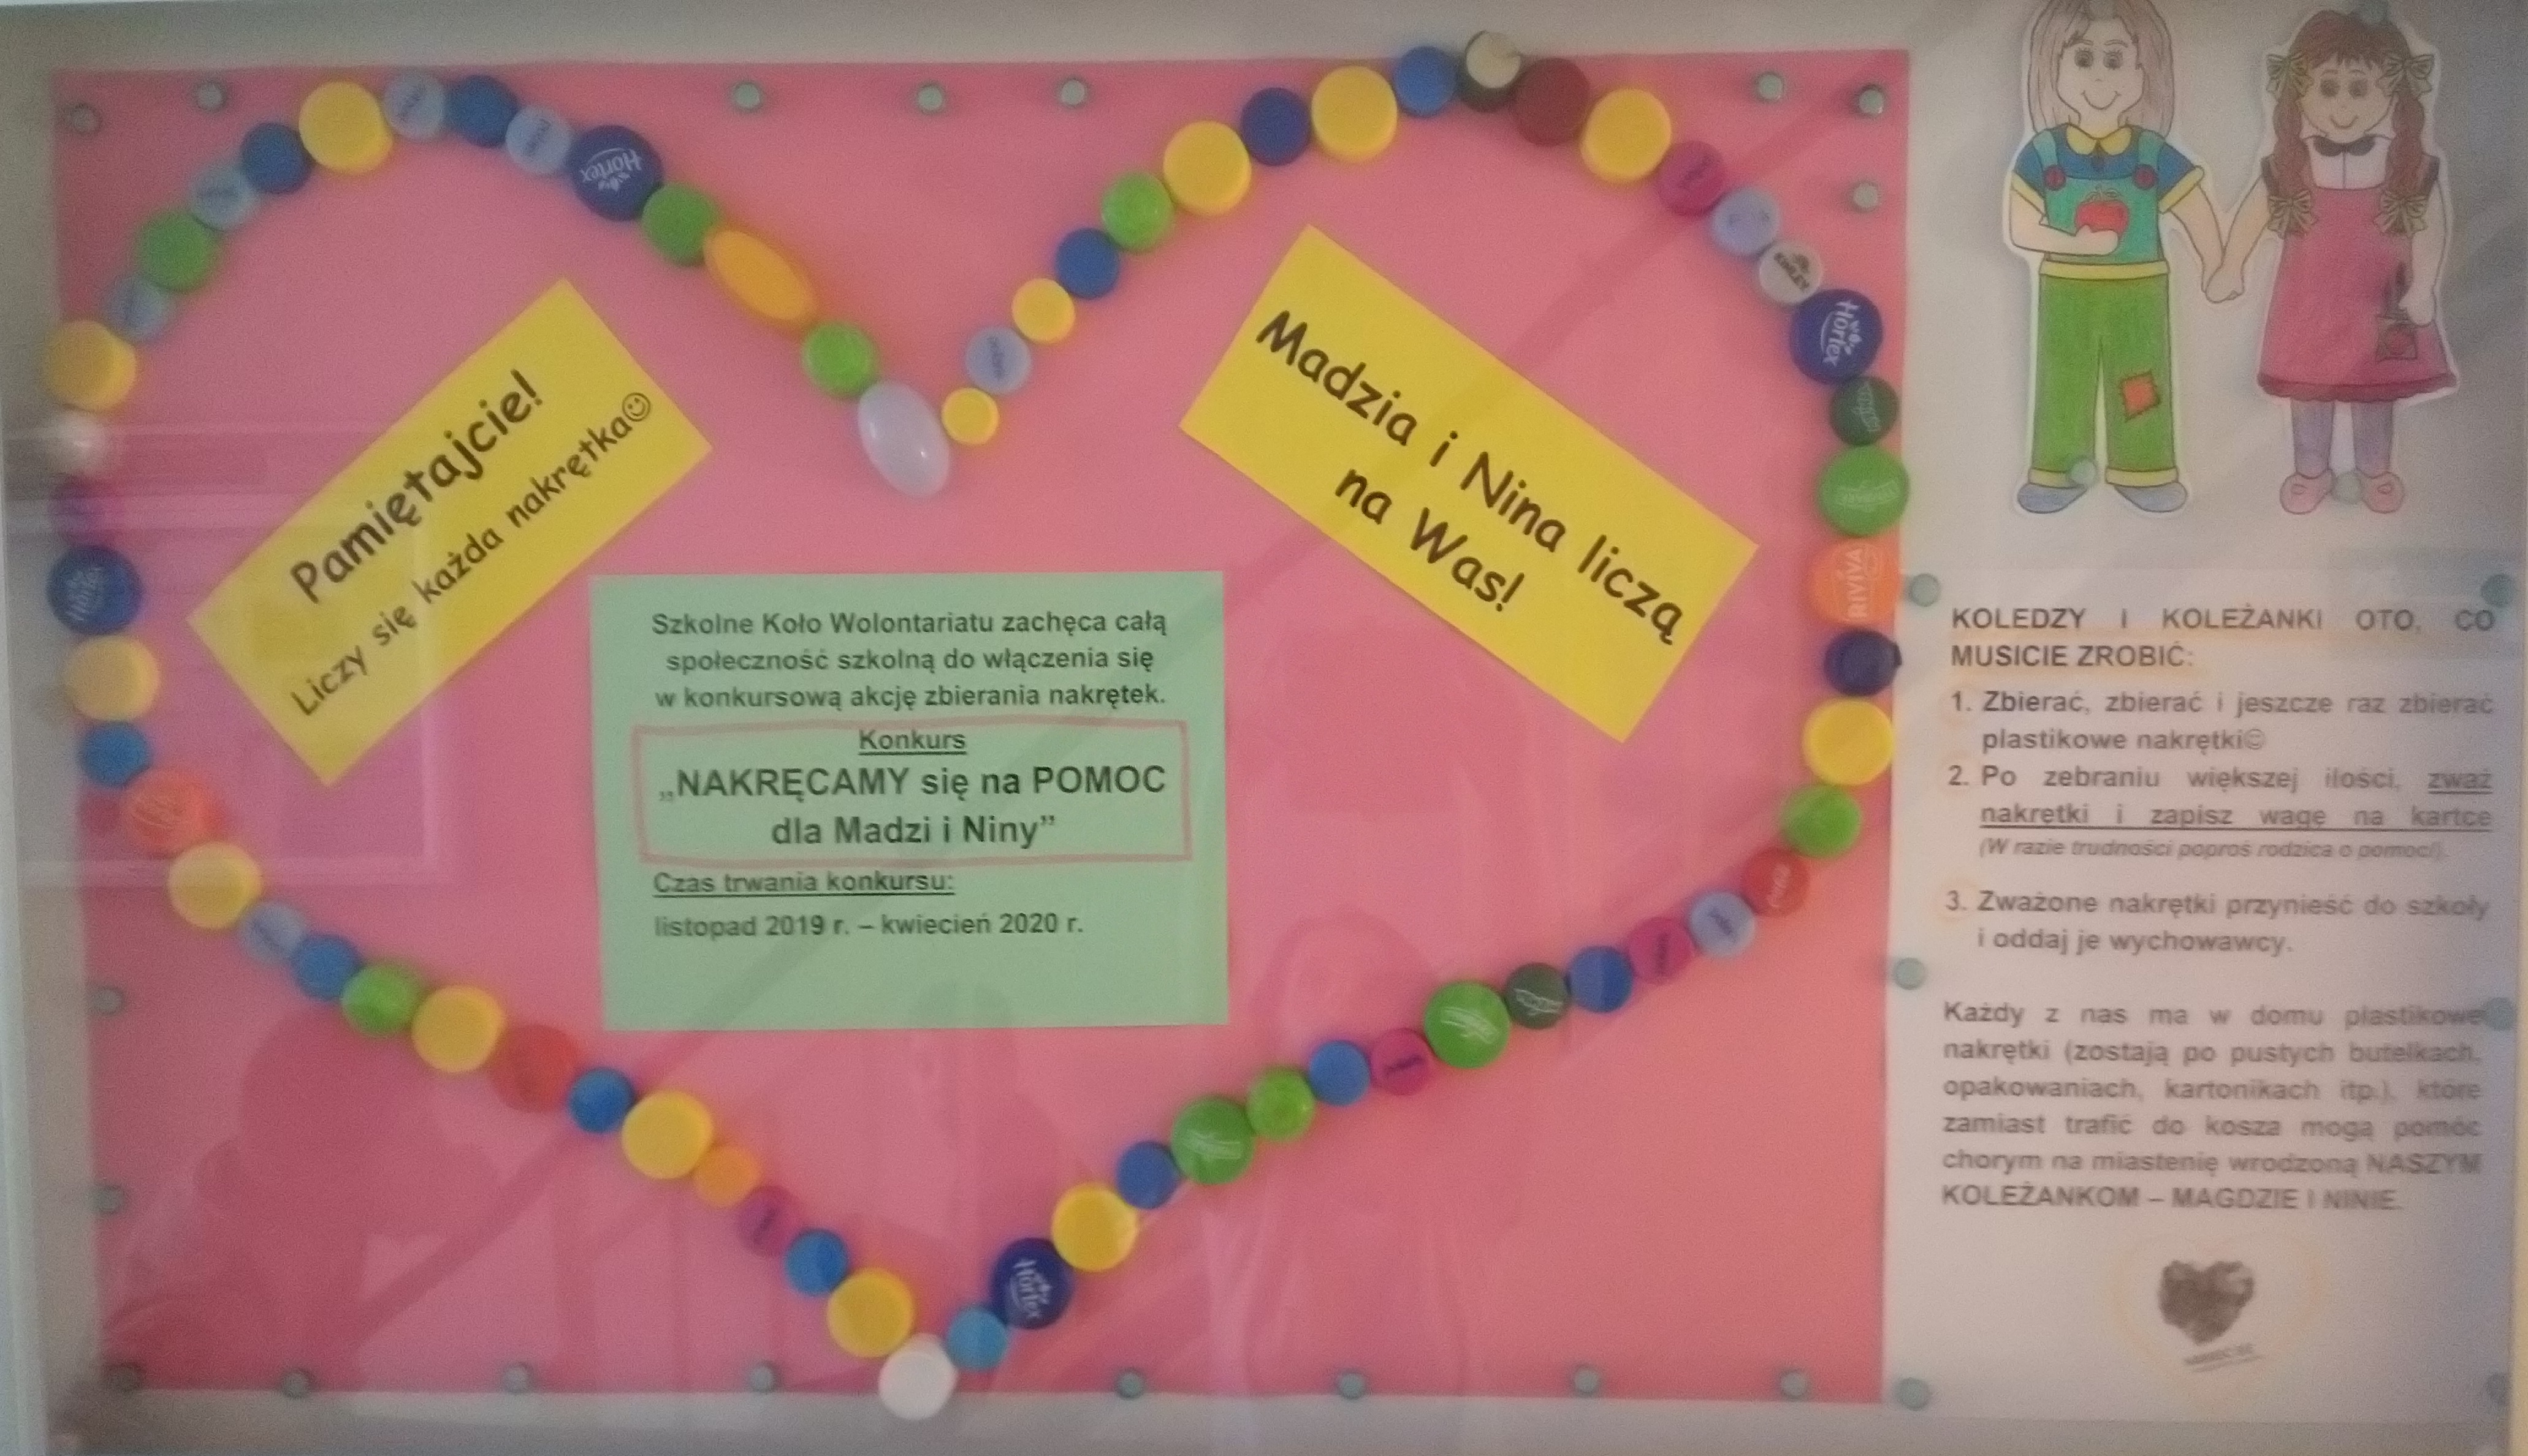 Pamiętajcie!
Liczy się każda nakrętka☺
Madzia i Nina liczą
na Was!
Szkolne Koło Wolontariatu zachęca całą
społeczność szkolną do włączenia się
w konkursową akcję zbierania nakrętek.
Konkurs
„NAKRĘCAMY się na POMOC
dla Madzi i Niny”
Czas trwania konkursu:
listopad 2019 r. – kwiecień 2020 r.
KOLEDZY I KOLEŻANKI OTO, CO
MUSICIE ZROBIĆ:
1. Zbierać, zbierać i jeszcze raz zbierać
plastikowe nakrętki☺
2. Po zebraniu większej ilości, zważ
nakrętki i zapisz wagę na kartce
(W razie trudności poproś rodzica o pomoc!).
3. Zważone nakrętki przynieść do szkoły
i oddaj je wychowawcy.
Każdy z nas ma w domu plastikowe
nakrętki (zostają po pustych butelkach,
opakowaniach, kartonikach itp.), które
zamiast trafić do kosza mogą pomóc
chorym na miastenię wrodzoną NASZYM
KOLEŻANKOM – MAGDZIE I NINIE.
Hortex
Hortex
Hortex
Hortex
KINLEY
RIVIVA